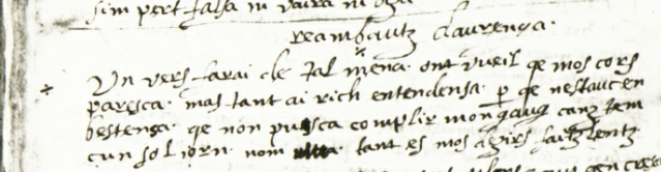 sim pert falsa ni vaira ni
reambautz daurenga.
Un vers farai de tal mena. ont vueil qe mos cors
paresca. mas tant ai rich entendensa. p qe nestauc en
bestensa. qe non puosca complir mon gaug canz tem
cun sol iorn. nom tant es mos dezirs faitz lentz
qun gen